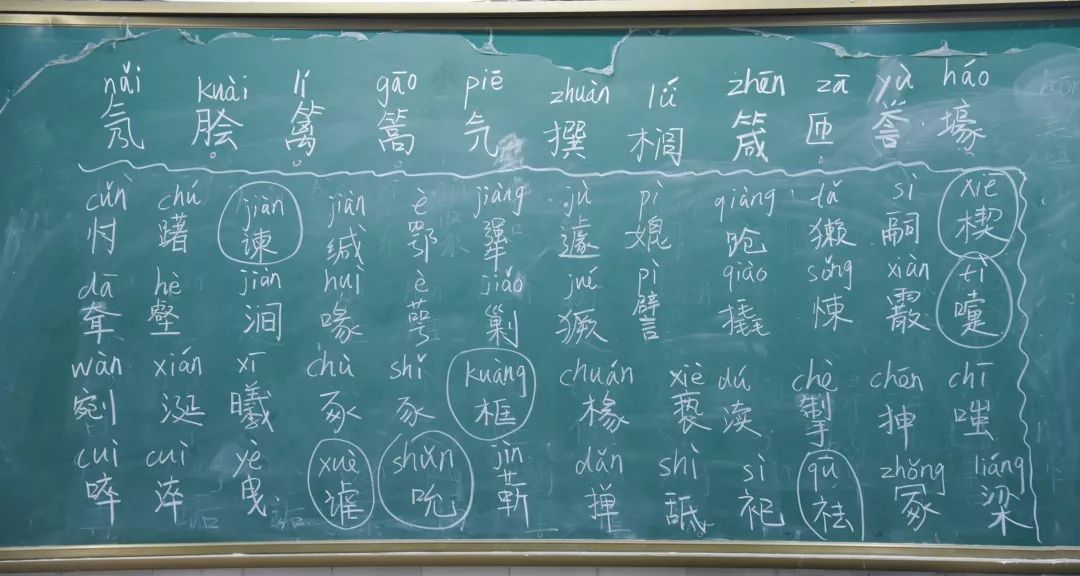 nǎi kuài lí gāo piē zhuàn lǘ zhēn zā yù háo
氖 脍 篱 篙 氕 撰 榈 箴 匝 誉 壕
cǔn chú jiàn jiàn è jiàng jù pì qiàng tǎ sì xiē
忖 躇 谏 缄 鄂 犟 遽 媲 跄 獭 嗣 楔
dā hè jiàn huì è jiǎo jué pì qiào sǒng xiàn tì
耷 壑 涧 喙 萼 剿 獗 譬 撬 悚 霰 嚏
wàn xián xī chù shǐ kuàng chuán xiè dú chè chēn chī
剜 涎 曦 豖 豕 框 椽 亵 渎 掣 抻 嗤
cuì cuì yè xuè shǔn jìn dǎn shì sì qū zhǒng liáng
啐 淬 曳 谑 吮 靳 掸 舐 祀 祛 冢 梁